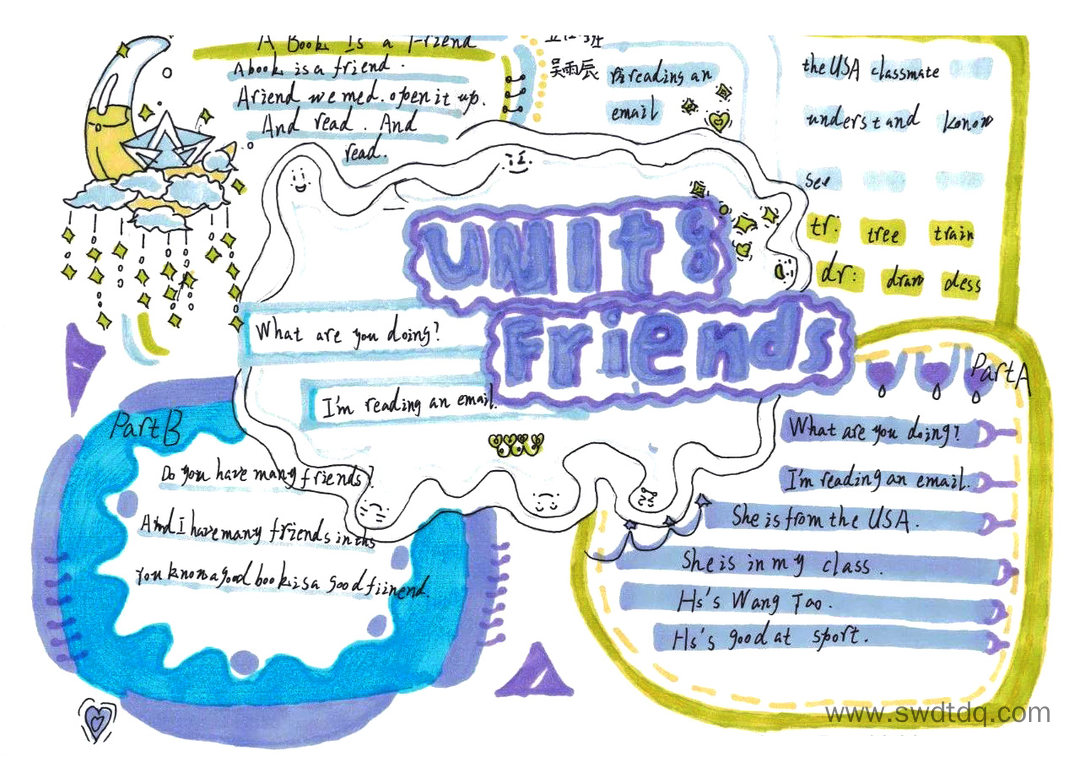 A Book Is a Friend
A book is a friend.
Ariend we med. open it up.
And read. And
read.
吴雨辰
reading an
email
the USA classmate
understand konow
see
tr: tree train
dr: draw dess
UNIt 8
Friends
What are you doing?
I'm reading an email.
Part B
Do you have many friends?
And I have many friends in ths
you knon a good book is a good fiinend.
Part A
What are you doing?
I'm reading an email.
She is from the USA.
She is in my class.
Hs's Wang Tao.
Hs's good at sport.
www.swdtdq.com